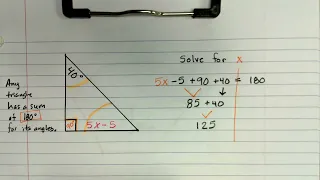 Solve for x
Any
triangle
has a sum
of 180°
for its angles.
40°
90°
5x-5
5x -5 +90 +40 = 180
85 +40
125